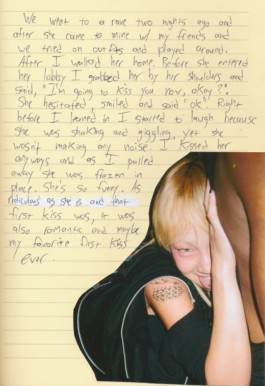 We went to a rave two nights ago and
after she came to mine w/ my friends and
we tried on outfits and played around.
After I walked her home. Before she entered
her lobby I grabbed her by her shoulders and
said, "I'm going to kiss you now, okay?".
She hesitated, smiled and said "ok". Right
before I leaned in I started to laugh because
she was shaking and giggling, yet she
wasn't making any noise. I kissed her
anyways and as I pulled
away she was frozen in
place. She's so funny. As
ridiculous as she is and that
first kiss was, it was
also romantic and maybe
my favorite first kiss
ever